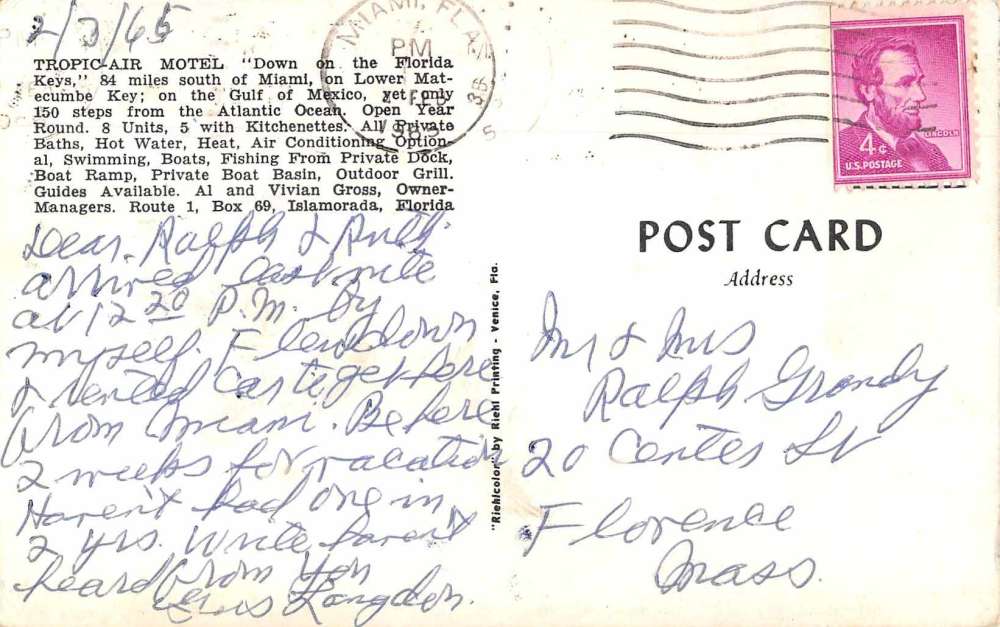 2/3/65
MIAMI, FLA.
PM
FEB
TROPIC-AIR MOTEL "Down on the Florida
Keys," 84 miles south of Miami, on Lower Mat-
ecumbe Key; on the Gulf of Mexico, yet only
150 steps from the Atlantic Ocean. Open Year
Round. 8 Units, 5 with Kitchenettes. All Private
Baths, Hot Water, Heat, Air Conditioning Option-
al, Swimming, Boats, Fishing From Private Dock,
Boat Ramp, Private Boat Basin, Outdoor Grill.
Guides Available. Al and Vivian Gross, Owner-
Managers. Route 1, Box 69, Islamorada, Florida
Dear Ralph & Ruth.
arrived last nite
at 12 20 P.M. by
myself. Flew down
& rented car to get here
from Miami. Be here
2 weeks for vacation
Haven't had one in
2 yrs. Write haven't
heard from you
Langdon.
"Riehlcolor" by Riehl Printing - Venice, Fla.
LINCOLN
4¢
U.S. POSTAGE
POST CARD
Address
Mr & Mrs
Ralph Grandy
20 Center St
Florence
Mass.